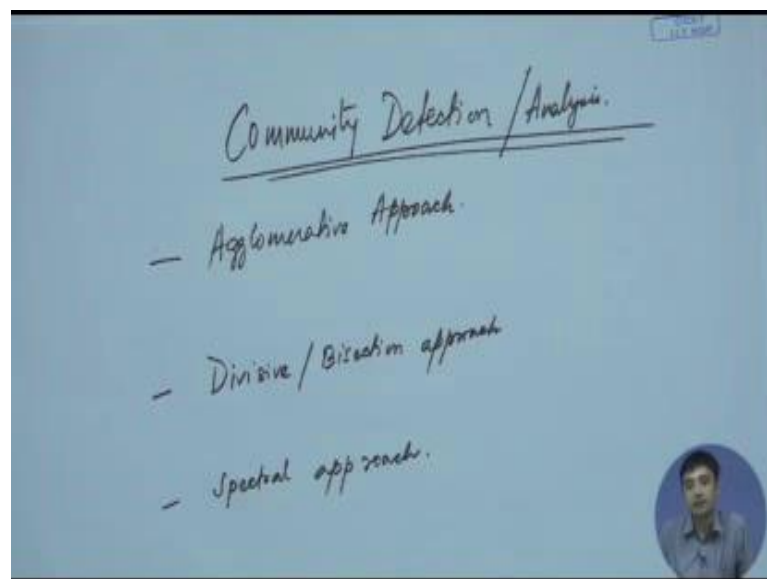 Community Detection / Analysis.
— Agglomerative Approach.
— Divisive / Bisection approach
— Spectral approach.